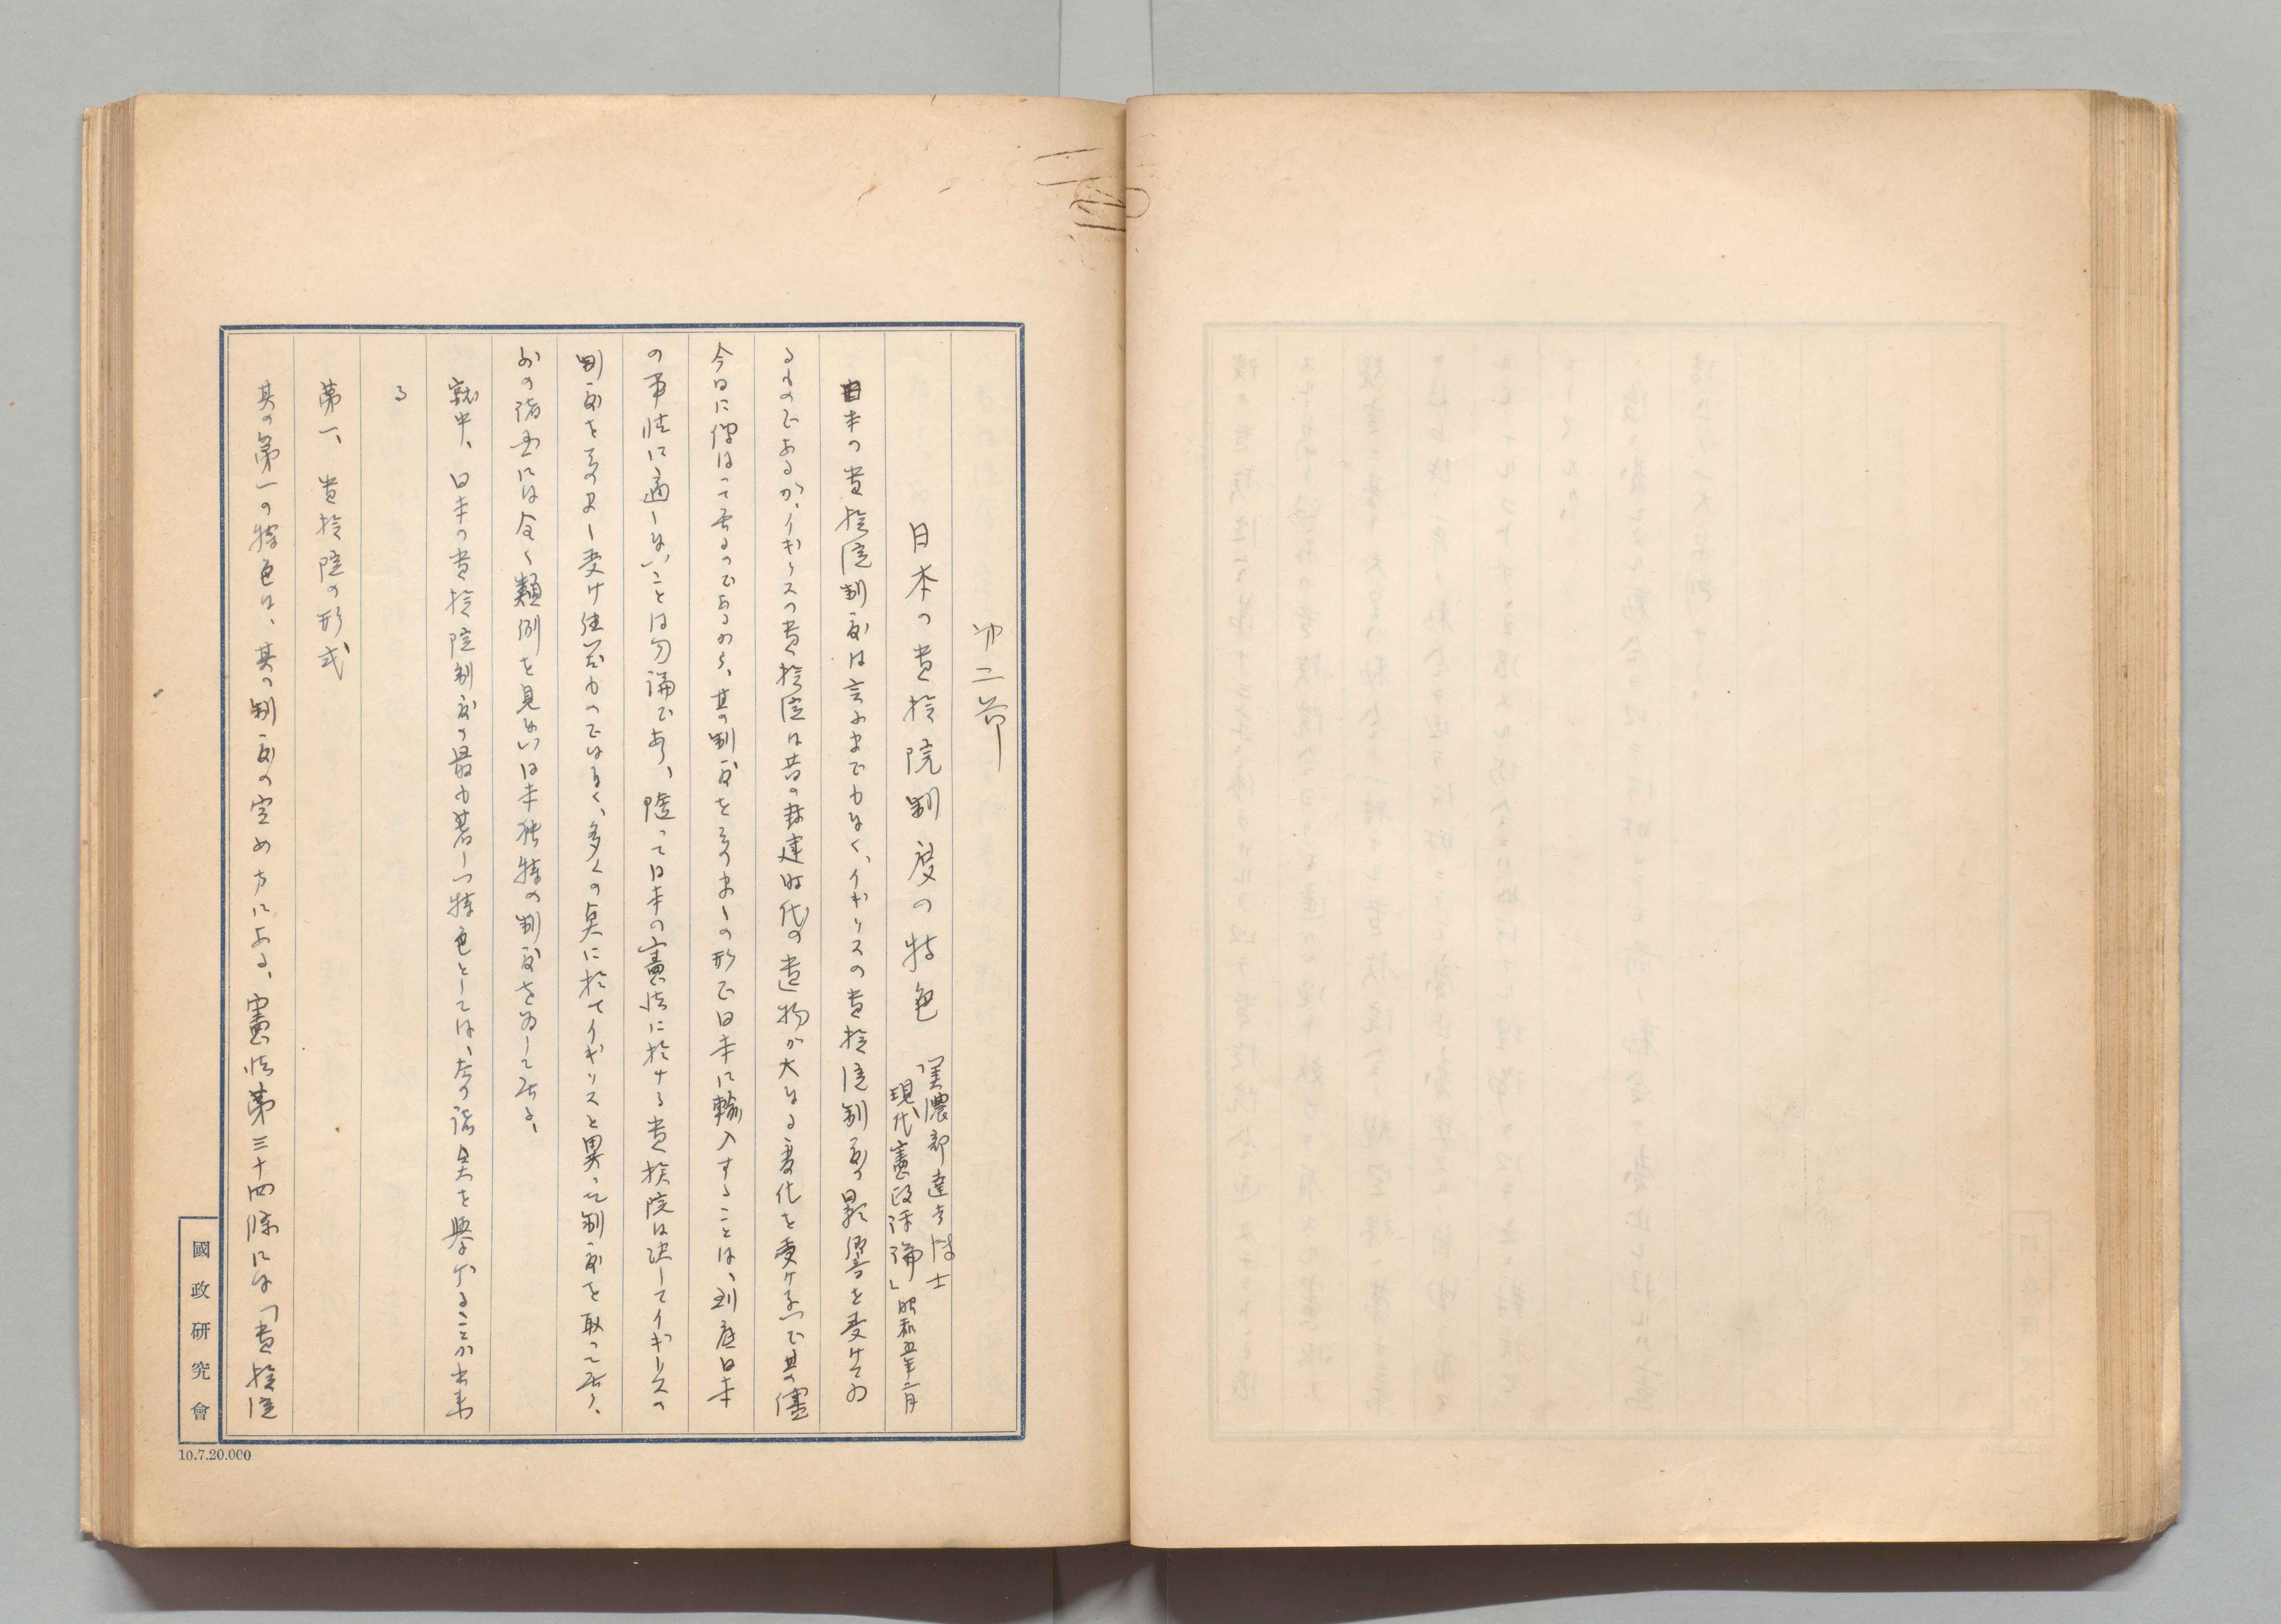 第二節
日本の貴族院制度の特色
「美濃部達吉博士
現代憲政評論」昭和五年二月
日本の貴族院制度は言ふまでもなく、イギリスの貴族院制度の影響を受けてゐ
るものであるが、イギリスの貴族院は昔の封建時代の遺物が大なる変化を受けないで其の儘
今日に伝はつて居るのであるから、其の制度をそのまゝの形で日本に輸入することは、到底日本
の事情に適しないことは勿論であり、随って日本の憲法に於ける貴族院は決してイギリスの
制度をそのまゝ受け継いだものではなく、多くの点に於てイギリスと異った制度を取って居り、
外の諸国には全く類例を見ない日本独特の制度を為して居る、
就中、日本の貴族院制度の最も著しい特色としては、左の諸点を挙げることが出来
る
第一、貴族院の形式
其の第一の特色は、其の制度の定め方にある、憲法第三十四條には「貴族院
國政研究會
10.7.20.000